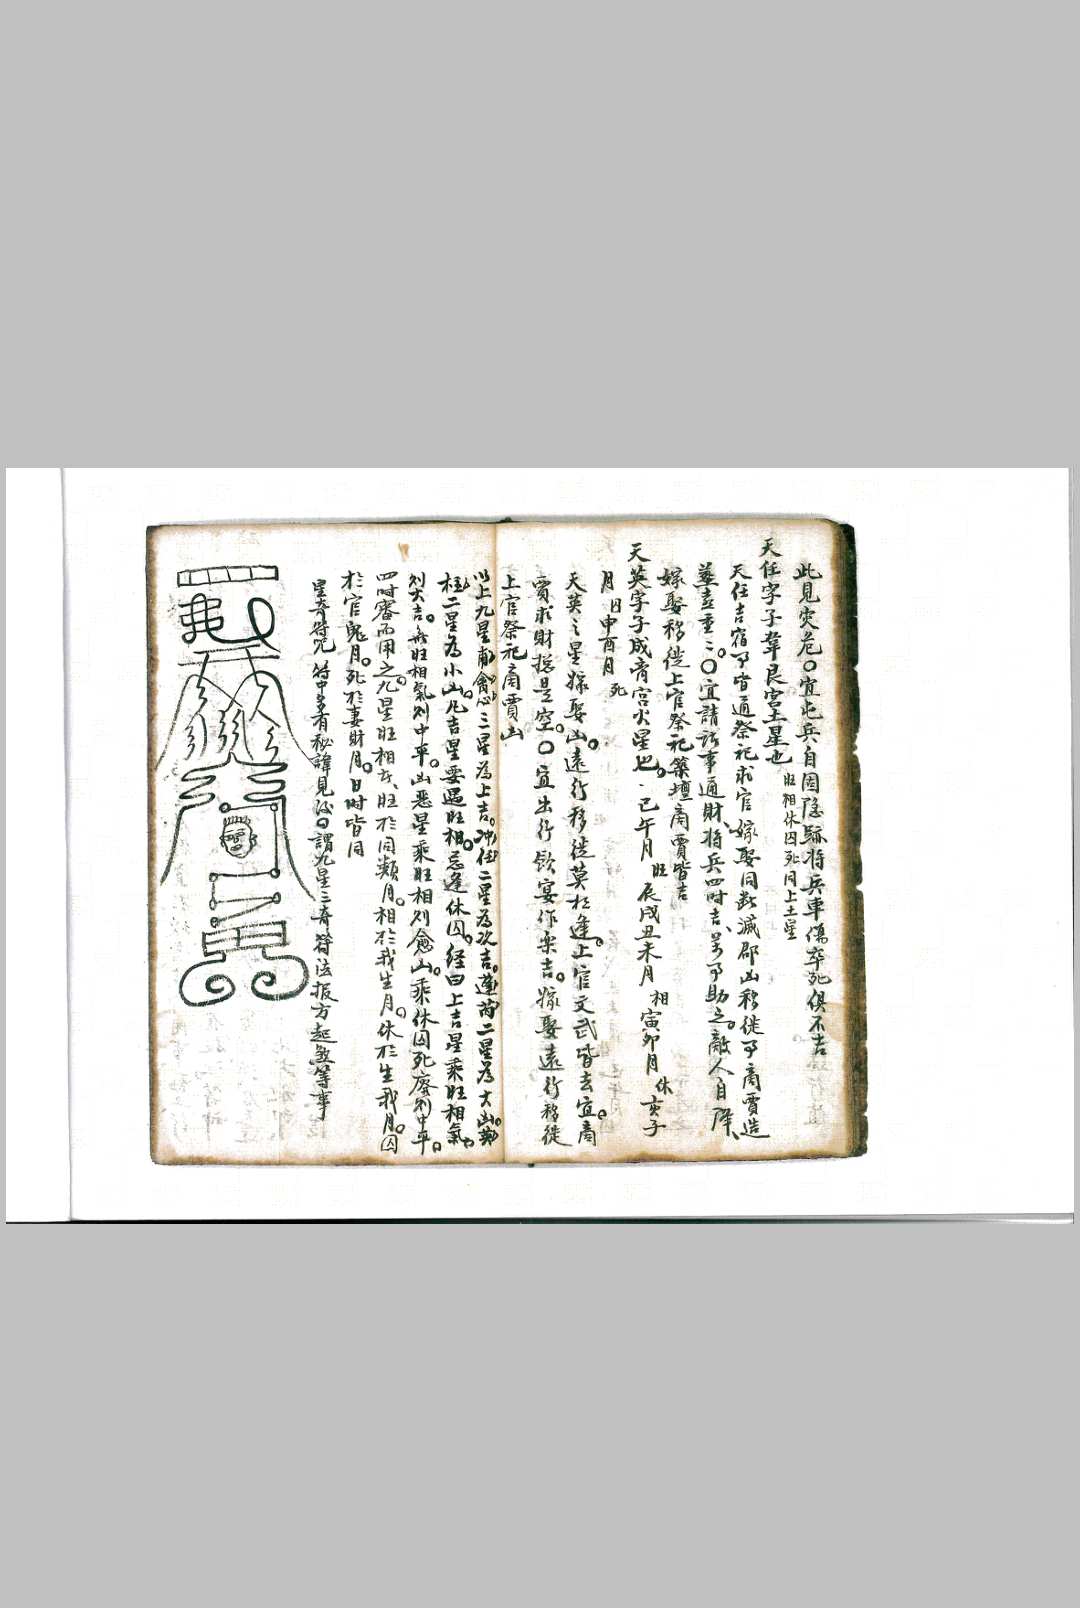 此見灾危〇宜屯兵自固隐跡将兵車傷卒死俱不吉
天任字子韋艮宫土星也 旺相休囚死同上土星
天任吉宿事皆通祭祀求官嫁娶同断滅郡凶移徙事商賈造
塟吉重二〇宜請谒事通財将兵四時吉万事助之敵人自降
嫁娶移徙上官祭祀築壇商賈皆吉
天英字子成离宫火星也 巳午月 旺 辰戌丑未月 相 寅卯月 休 亥子
月 囚 申酉月 死
天英之星嫁娶凶遠行移徙莫相逢上官文武皆去宜商
賈求財総是空〇宜出行飲宴作樂吉嫁娶遠行移徙
上官祭祀商賈凶
以上九星輔禽心三星為上吉冲任二星為次吉蓬芮二星為大凶英
柱二星為小凶凡吉星要遇旺相忌逢休囚経曰上吉星乘旺相氣
則大吉無旺相氣則中平凶恶星乘旺相則愈凶乘休囚死廢則中平
四時審而用之九星旺相者旺於同類月相於我生月休於生我月囚
於官鬼月死於妻財月日時皆同
星奇符咒 符中多有秘諱見後曰謂九星三奇符法报方起煞等事